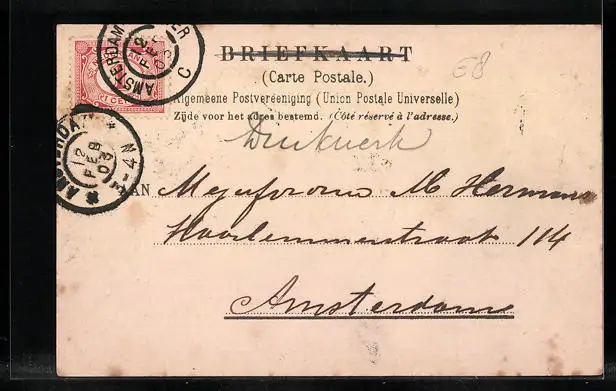 AMSTERDAM
12
FEB
03
C
BRIEFKAART
E8
(Carte Postale.)
Algemeene Postvereeniging (Union Postale Universelle)
Zijde voor het adres bestemd. (Côté réservé à l'adresse.)
Drukwerk
12
FEB
03
4 N
AAN Mejufvrouw M Hermans
Haarlemmerstraat 114
Amsterdam